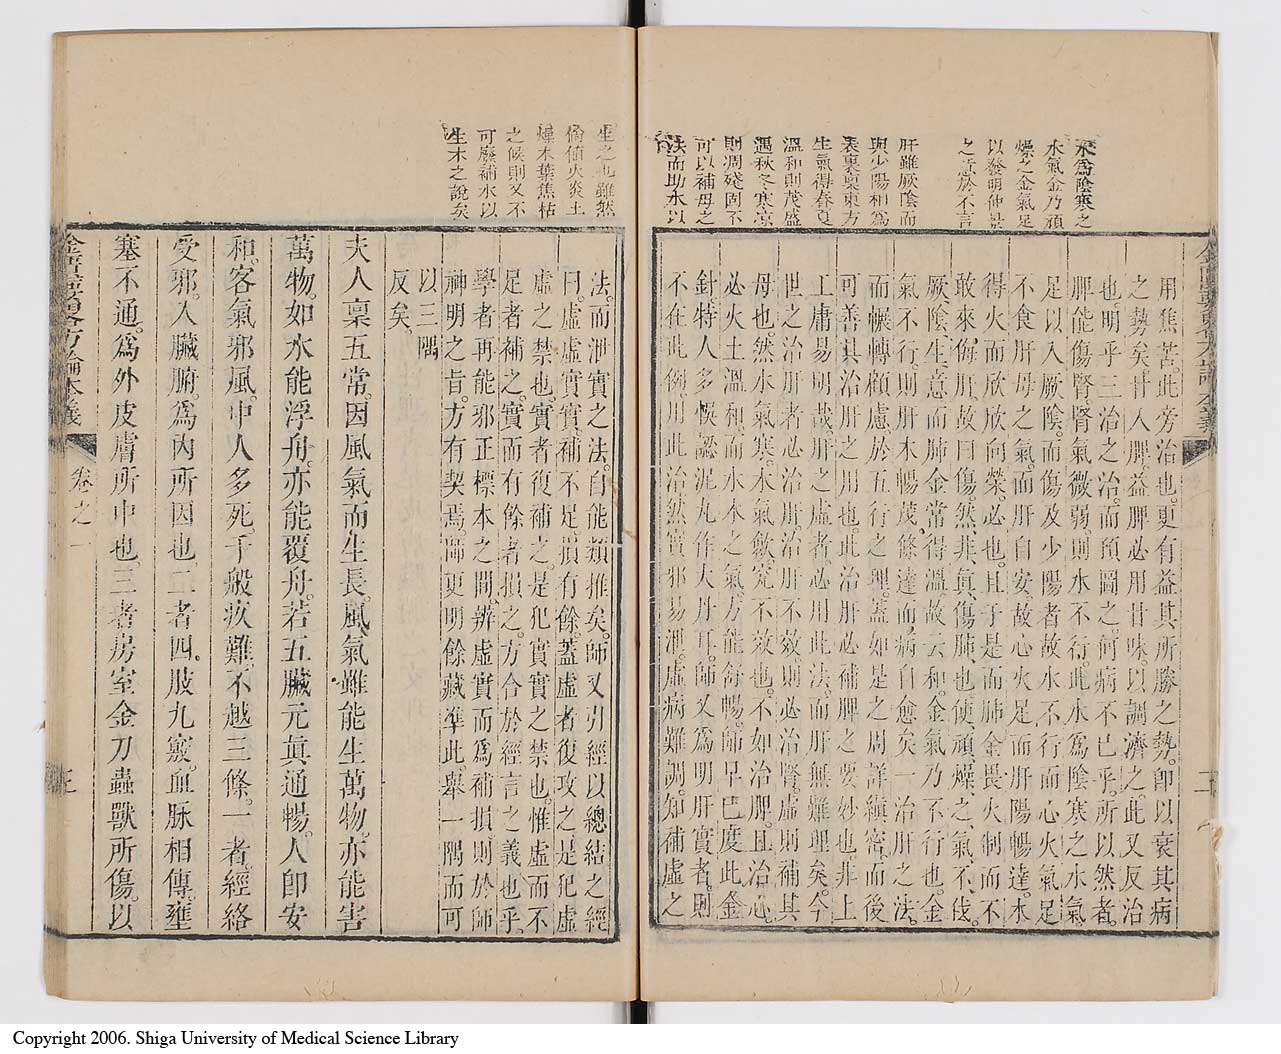 水為陰寒之
水氣金乃頑
燥之金氣足
以發明仲景
之意於不言
肝雖厥陰而
與少陽相為
表裏稟東方
生氣得春夏
溫和則茂盛
遇秋冬寒凉
則凋殘固不
可以補母之
法而助水以
用焦苦此旁治也。更有益其所勝之勢。即以衰其病
之勢矣。甘入脾。益脾必用甘味。以調濟之。此又反治
也。明乎三治之治。而預圖之。何病不已乎。所以然者。
脾能傷腎。腎氣微弱。則水不行。此水為陰寒之水氣
足以入厥陰。而傷及少陽者。故水不行而心火氣足
不食肝母之氣。而肝自安。故心火足而肝陽暢達。木
得火而欣欣向榮。必也。且于是而肺金畏火制而不
敢來侮肝。故曰傷然。非真傷肺也。使頑燥之氣。不伐
厥陰生意。而肺金常得溫。故云和。金氣乃不行也。金
氣不行。則肝木暢茂條達。而病自愈矣。一治肝之法。
而輾轉顧慮於五行之理。蓋如是之周詳縝密。而後
可善其治肝之用也。此治肝必補脾之要妙也。非上
工庸易明哉。肝之虛者。必用此法。而肝無難理矣。今
世之治肝者。必治肝。治肝不效。則必治腎。虛則補其
母也。然水氣寒。木氣歛。究不效也。不如治脾。且治心
必火土溫和。而水木之氣。方能舒暢。師早已度此金
針。特人多悞認泥丸作大丹耳。師又為明肝實者。則
不在此例用此治。然實邪易泄。虛病難調。知補虛之
生之也雖然
倘値火炎土
燥木葉焦枯
之候則又不
可廢補水以
生木之說矣
法。而泄實之法。自能類推矣。師又引經以總結之。經
曰。虛虛實實。補不足。損有餘。蓋虛者復攻之。是犯虛
虛之禁也。實者復補之。是犯實實之禁也。惟虛而不
足者補之。實而有餘者損之。方合於經言之義也乎。
學者再能邪正標本之間。辨虛實而為補損。則於師
神明之旨。方有契焉。師更明餘藏準此。舉一隅而可
以三隅
反矣。
夫人稟五常。因風氣而生長。風氣雖能生萬物。亦能害
萬物。如水能浮舟。亦能覆舟。若五臟元真通暢。人即安
和。客氣邪風。中人多死。千般疢難。不越三條。一者。經絡
受邪。入臟腑。為內所因也。二者。四肢九竅。血脉相傳。壅
塞不通。為外皮膚所中也。三者。房室金刀蟲獸所傷。以
金匱要略方論本義
卷之一
三
Copyright 2006. Shiga University of Medical Science Library